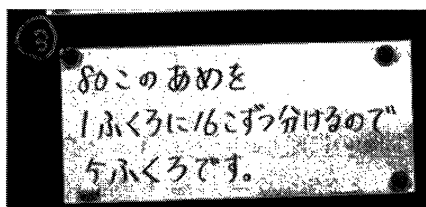 ③
80このあめを
1ふくろに16こずつ分けるので
5ふくろです。